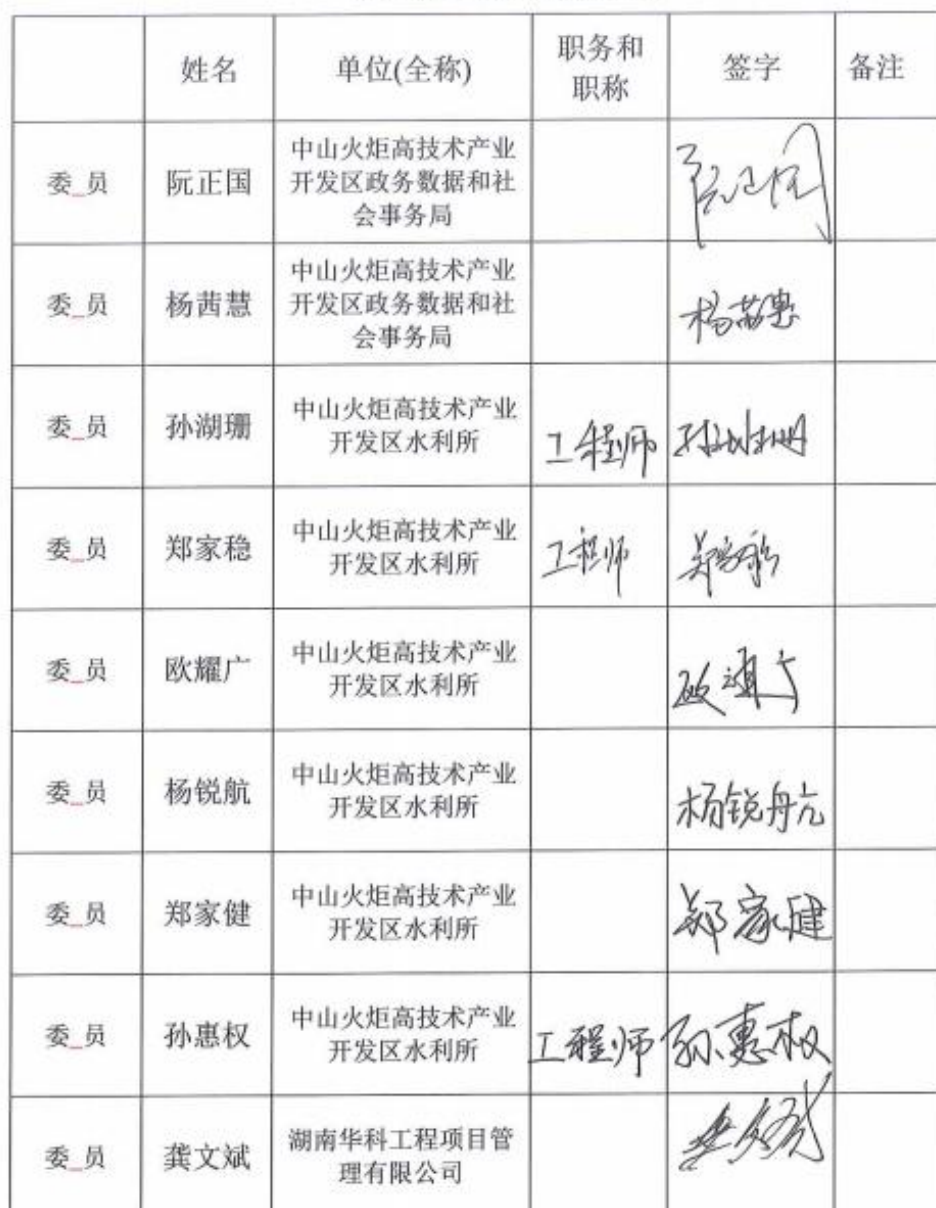 姓名
单位(全称)
职务和
职称
签字
备注
委 员
阮正国
中山火炬高技术产业
开发区政务数据和社
会事务局
阮正国
委 员
杨茜慧
中山火炬高技术产业
开发区政务数据和社
会事务局
杨茜慧
委 员
孙湖珊
中山火炬高技术产业
开发区水利所
工程师
孙湖珊
委 员
郑家稳
中山火炬高技术产业
开发区水利所
工程师
郑家稳
委 员
欧耀广
中山火炬高技术产业
开发区水利所
欧耀广
委 员
杨锐航
中山火炬高技术产业
开发区水利所
杨锐航
委 员
郑家健
中山火炬高技术产业
开发区水利所
郑家健
委 员
孙惠权
中山火炬高技术产业
开发区水利所
工程师
孙惠权
委 员
龚文斌
湖南华科工程项目管
理有限公司
龚文斌